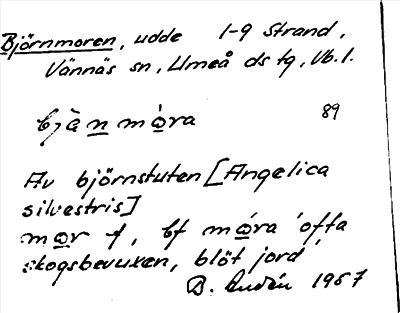 Björnmoren, udde 1-9 Strand,
Vännäs sn, Umeå ds tg, Vb.l.
bjà̱n mò̱ra 89
Av björnstuten [Angelica
silvestris]
mo̱r f, bf mó̱ra 'ofta
skogsbevuxen, blöt jord'
B. Lindén 1967